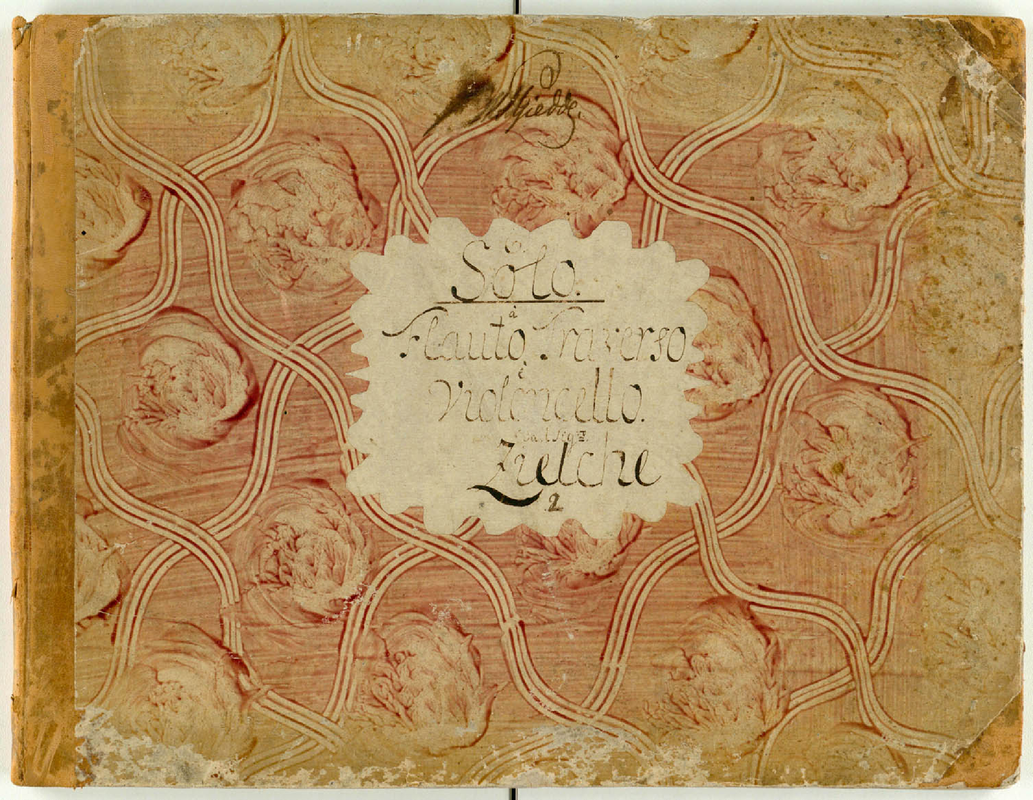 WHGiedde.
Solo.
à
Flauto, Traverso
e
Violoncello.
Zielche
2